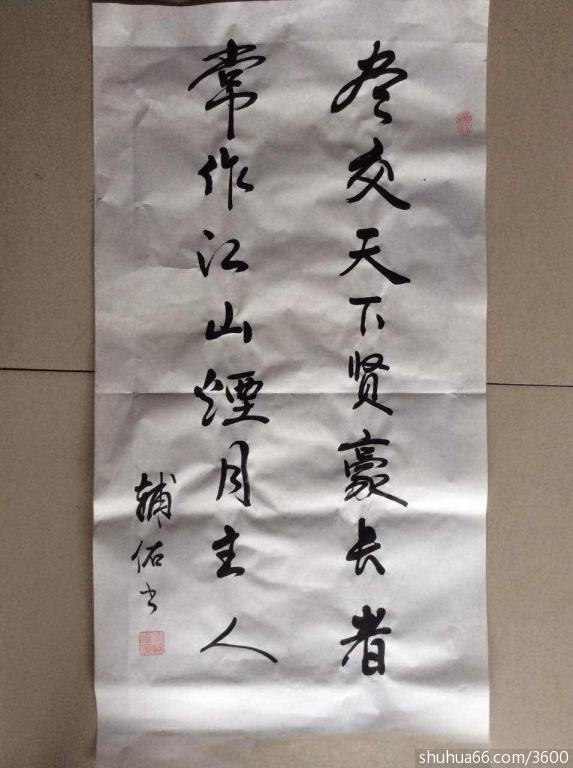 尽交天下贤豪长者
常作江山煙月主人
辅佑书
shuhua66.com/3600